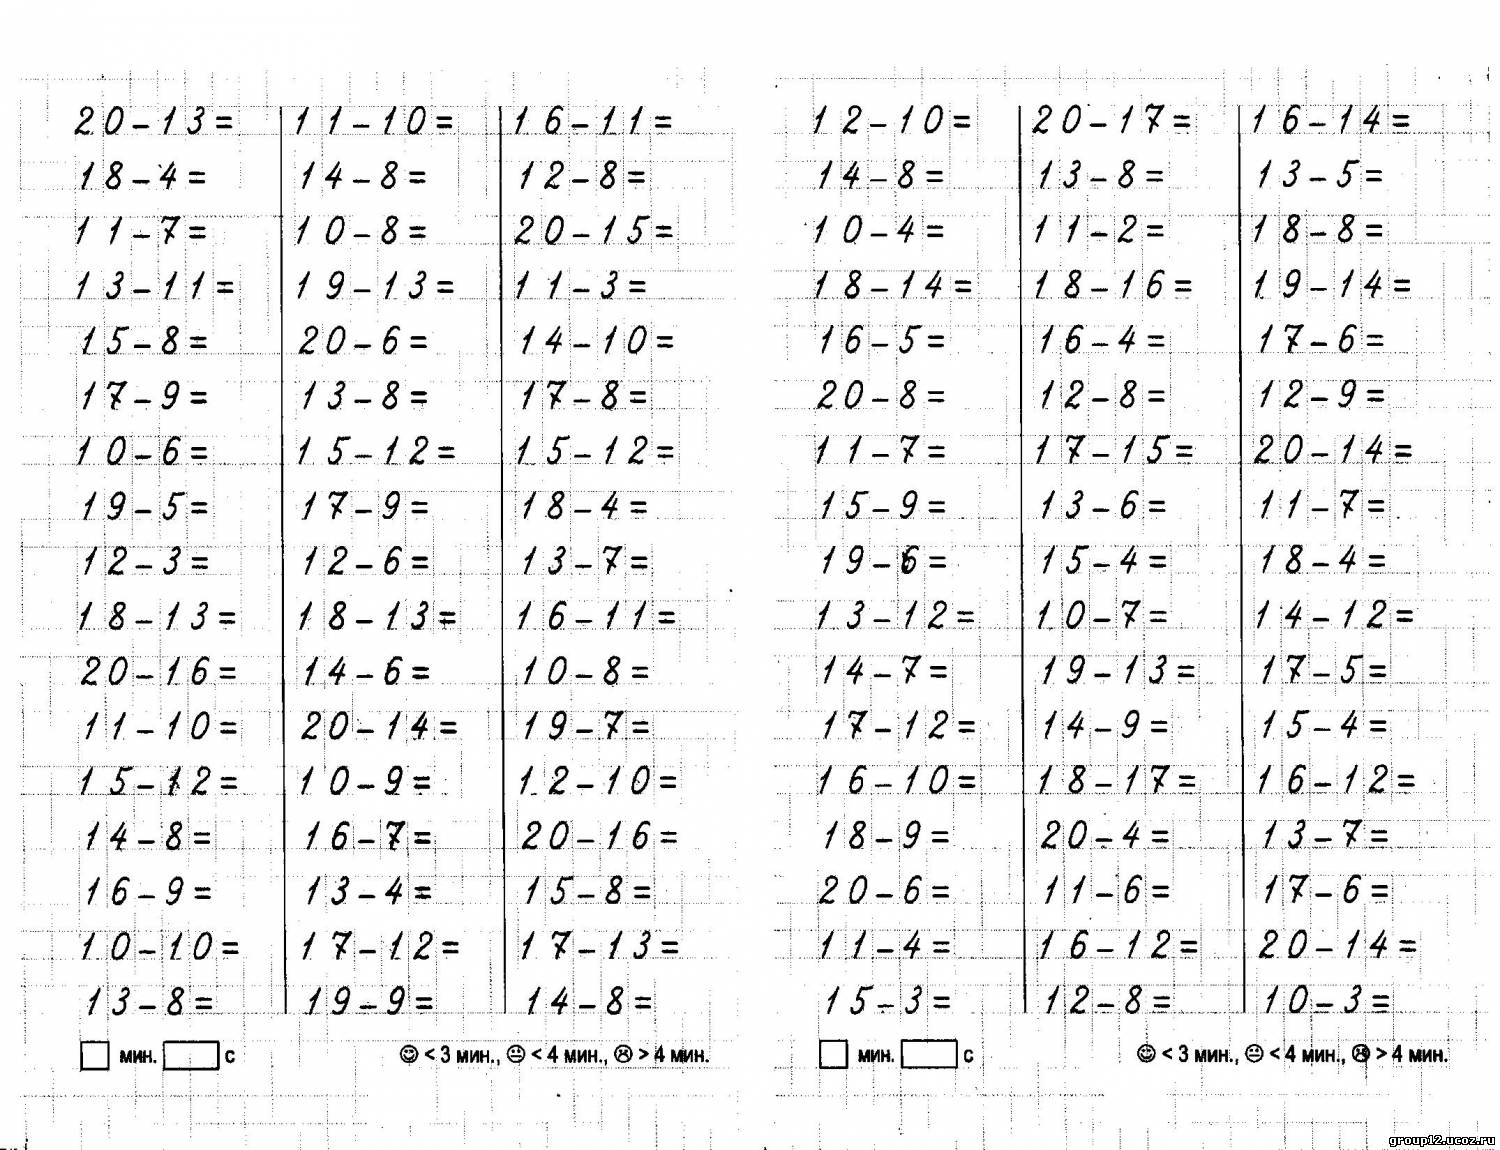 20-13= 11-10= 16-11=
18-4= 14-8= 12-8=
11-7= 10-8= 20-15=
13-11= 19-13= 11-3=
15-8= 20-6= 14-10=
17-9= 13-8= 17-8=
10-6= 15-12= 15-12=
19-5= 17-9= 18-4=
12-3= 12-6= 13-7=
18-13= 18-13= 16-11=
20-16= 14-6= 10-8=
11-10= 20-14= 19-7=
15-12= 10-9= 12-10=
14-8= 16-7= 20-16=
16-9= 13-4= 15-8=
10-10= 17-12= 17-13=
13-8= 19-9= 14-8=
мин. с ☺ < 3 мин., 😐 < 4 мин., ☹ > 4 мин.
12-10= 20-17= 16-14=
14-8= 13-8= 13-5=
10-4= 11-2= 18-8=
18-14= 18-16= 19-14=
16-5= 16-4= 17-6=
20-8= 12-8= 12-9=
11-7= 17-15= 20-14=
15-9= 13-6= 11-7=
19-6= 15-4= 18-4=
13-12= 10-7= 14-12=
14-7= 19-13= 17-5=
17-12= 14-9= 15-4=
16-10= 18-17= 16-12=
18-9= 20-4= 13-7=
20-6= 11-6= 17-6=
11-4= 16-12= 20-14=
15-3= 12-8= 10-3=
мин. с ☺ < 3 мин., 😐 < 4 мин., ☹ > 4 мин.
group12.ucoz.ru